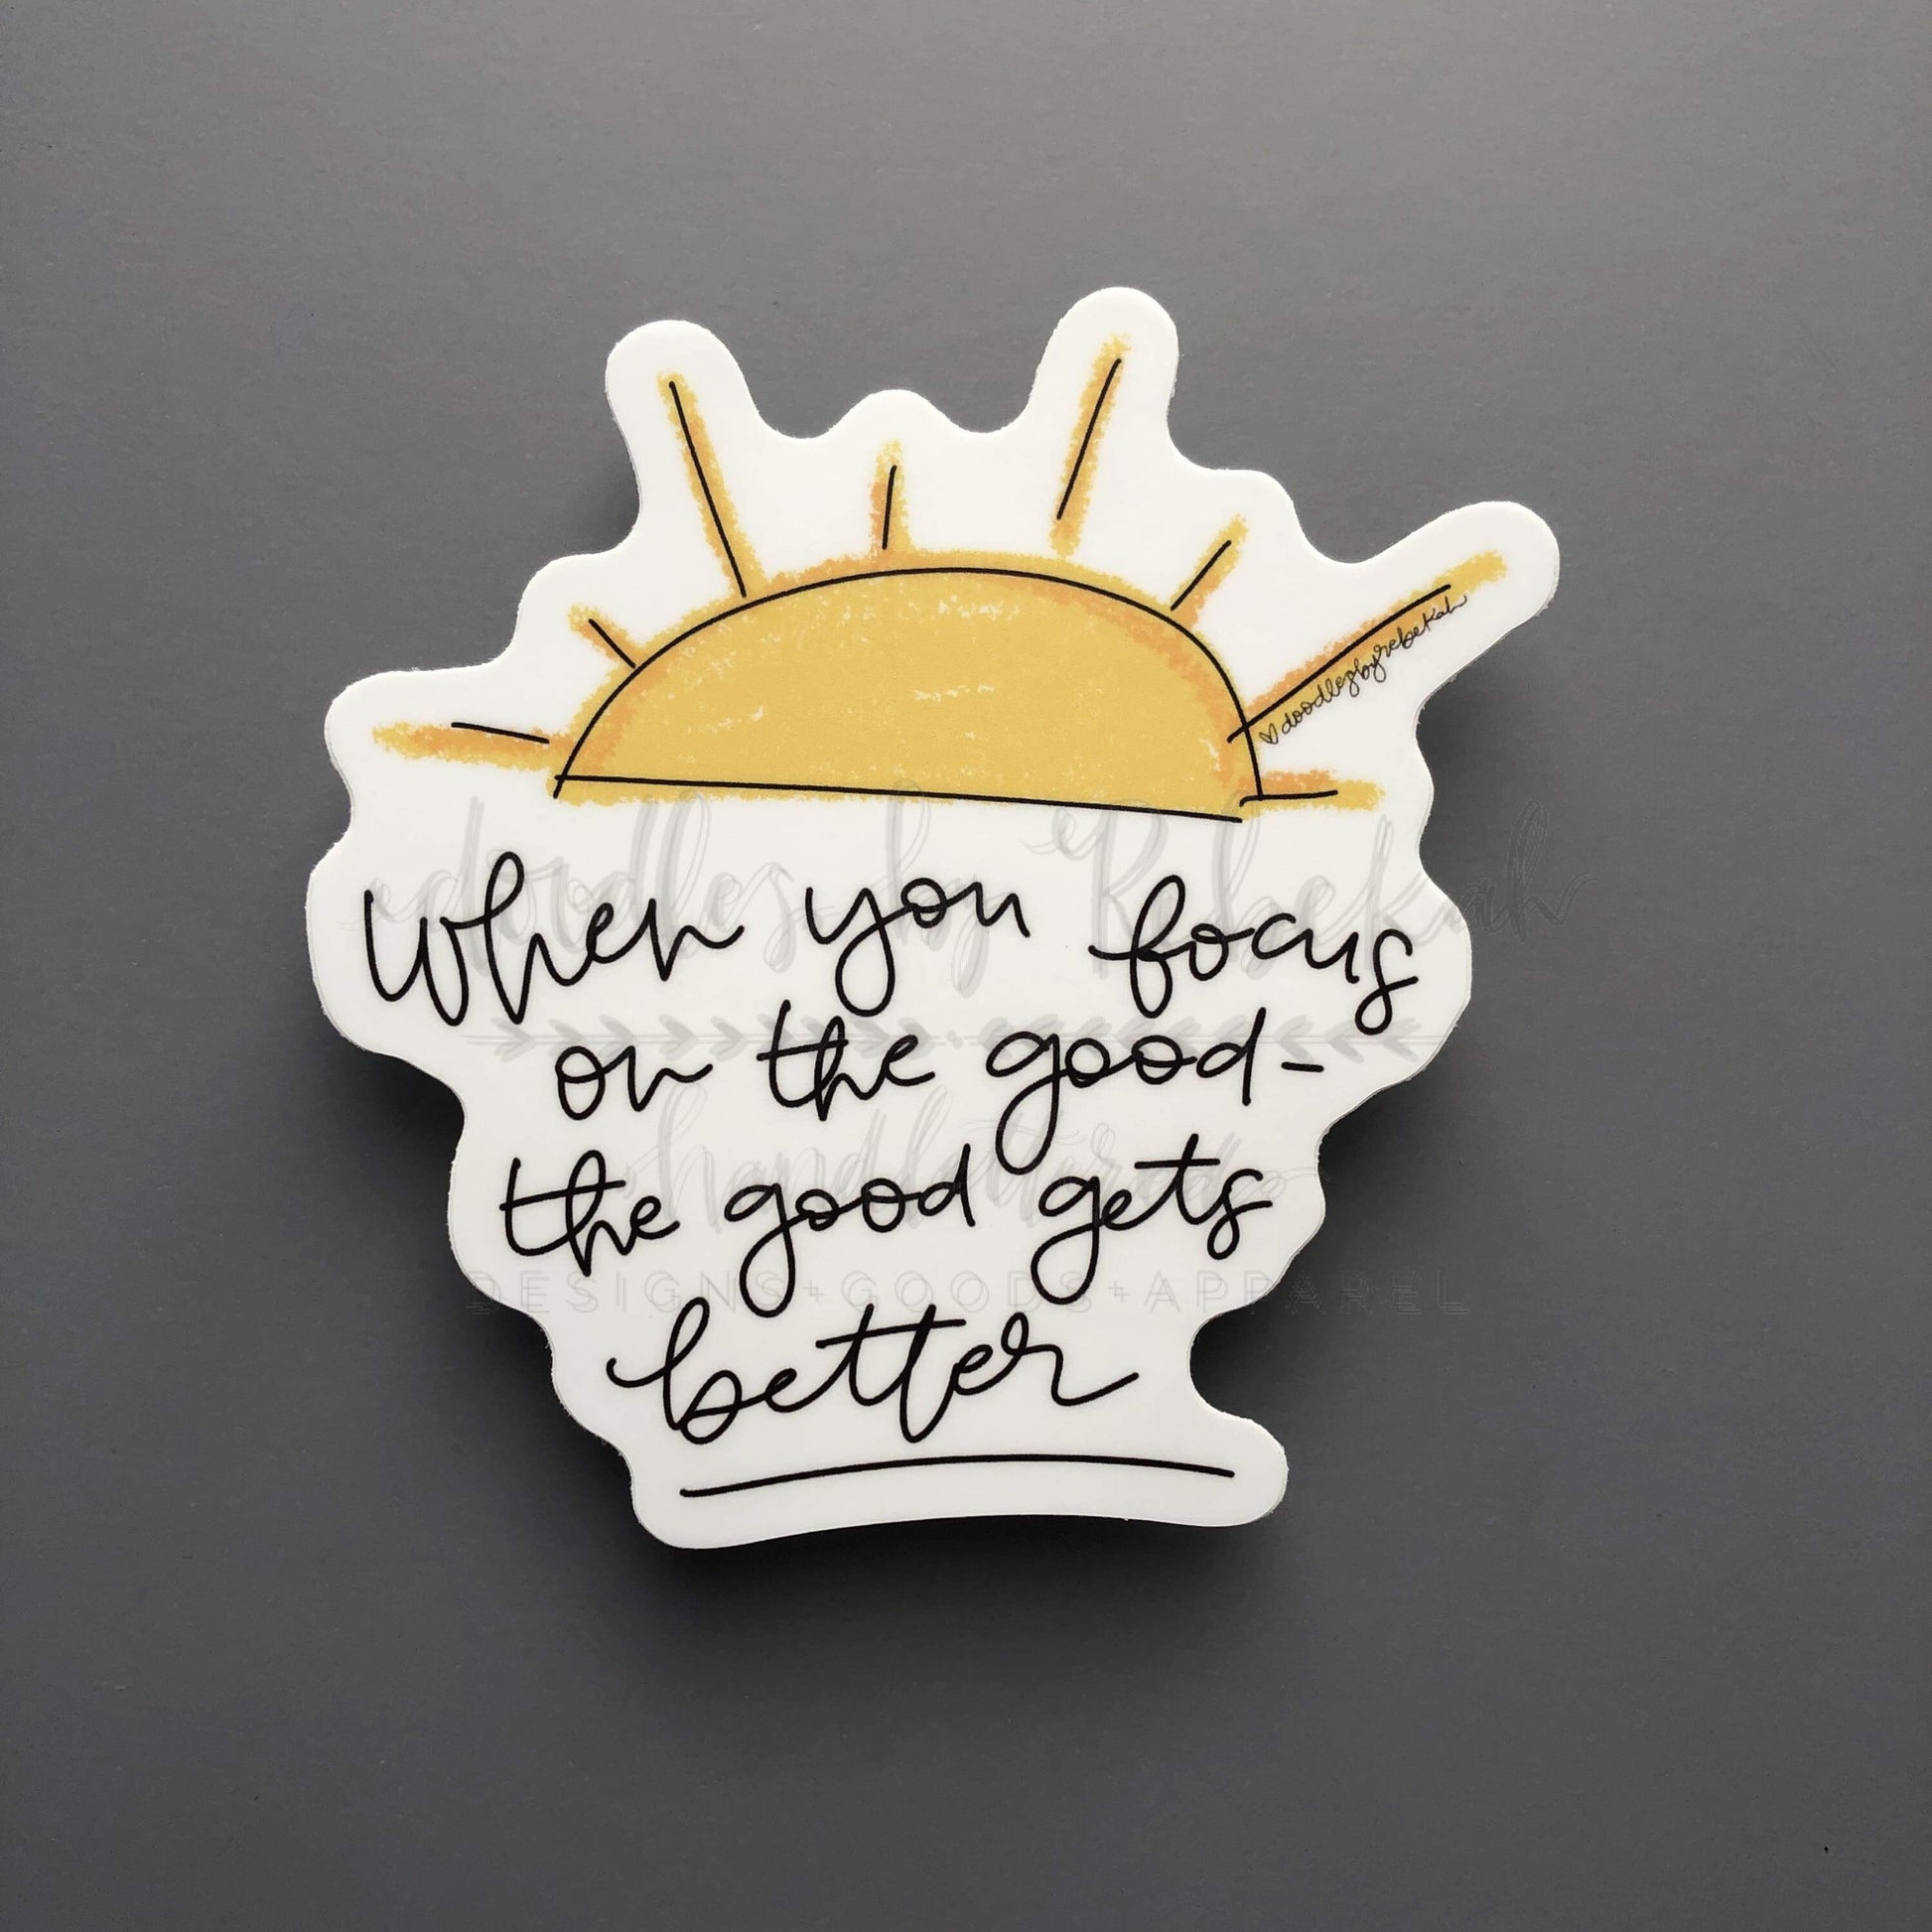 ♡doodlesbyrebekah
doodles by Rebekah
When you focus
on the good-
the good gets
better
DESIGNS+GOODS+APPAREL